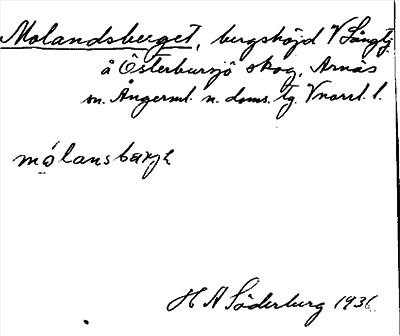 Molandsberget, bergshöjd V Långtj.
å Österbursjö skog, Arnäs
sn. Ångerml. n. doms. tg. Vnorrl. l.
mólansbærjə
H A Söderburg 1936